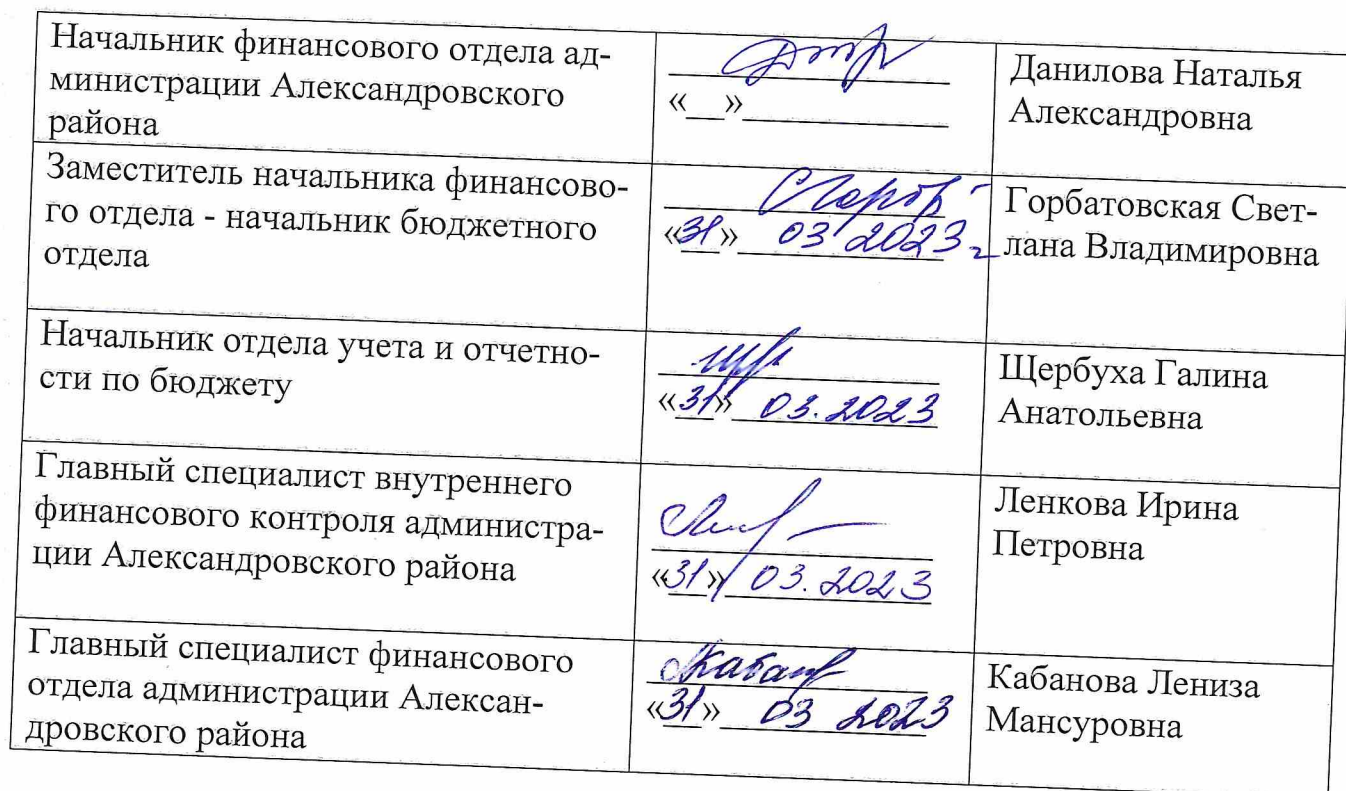 Начальник финансового отдела ад-
министрации Александровского
района
«__»______________
Данилова Наталья
Александровна
Заместитель начальника финансово-
го отдела - начальник бюджетного
отдела
«31» 03 2023 г
Горбатовская Свет-
лана Владимировна
Начальник отдела учета и отчетно-
сти по бюджету
«31» 03.2023
Щербуха Галина
Анатольевна
Главный специалист внутреннего
финансового контроля администра-
ции Александровского района
«31» 03.2023
Ленкова Ирина
Петровна
Главный специалист финансового
отдела администрации Алексан-
дровского района
«31» 03 2023
Кабанова Лениза
Мансуровна